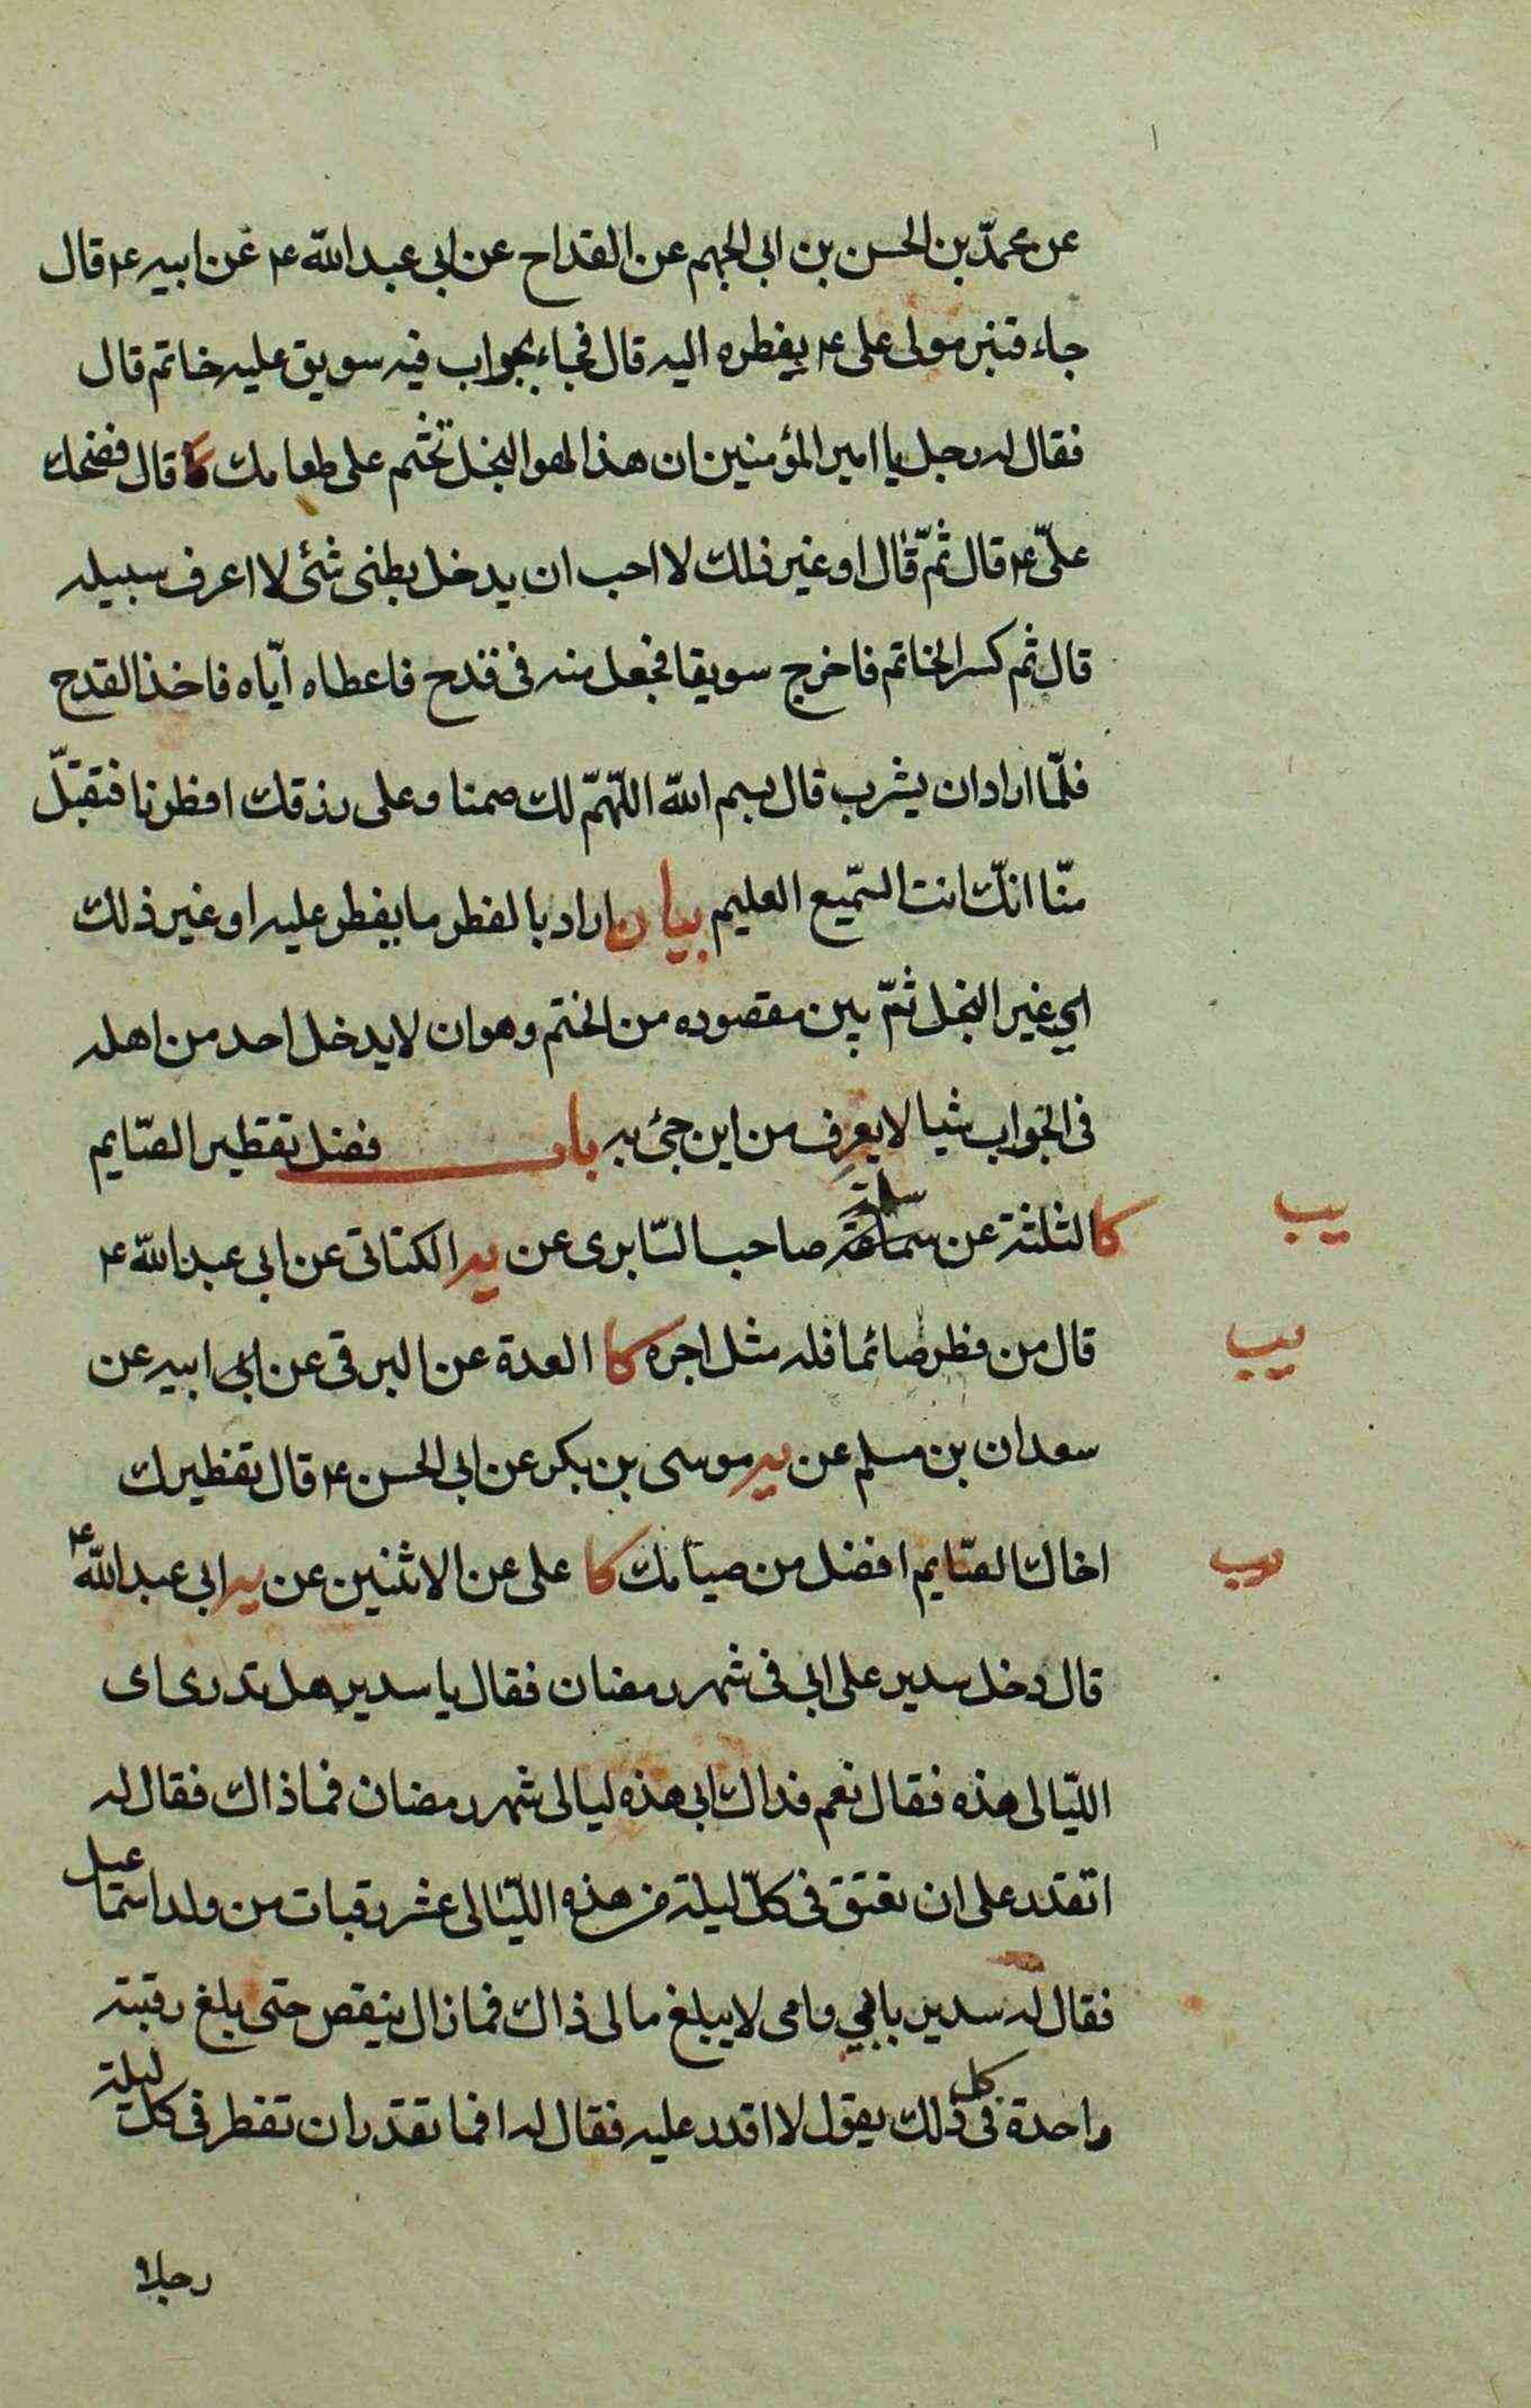 عن محمّد بن الحسن بن ابى الجهم عن القداح عن ابى عبد اللّه ع عن ابيه ع قال
جاء قنبر مولى على ع بفطره اليه قال فجاء بجواب فيه سويق عليه خاتم قال
فقال له رجل يا امير المؤمنين ان هذا لهو البخل تختم على طعامك قال فضحك
علىّ ع قال ثمّ قال او غير ذلك لا احب ان يدخل بطنى شئى لا اعرف سبيله
قال ثم كسر الخاتم فاخرج سويقا فجعل منه فى قدح فاعطاه ايّاه فاخذ القدح
فلمّا اراد ان يشرب قال بسم اللّه اللّهمّ لك صمنا وعلى رزقك افطرنا فتقبّل
منّا انّك انت السّميع العليم بيان اراد بالفطر ما يفطر عليه او غير ذلك
اي غير البخل ثمّ بين مقصوده من الختم وهو ان لا يدخل احد من اهله
فى الجواب شيا لا يعرف من اين جئ به باب فضل تفطير الصّايم
يب
كا الثلثة عن سلمة صاحب السّابرى عن ير الكنانى عن ابى عبد اللّه ع
يب
قال من فطر صائما فله مثل اجره كا العدة عن البرقى عن ابيه عن
سعدان بن مسلم عن ير موسى بن بكر عن ابى الحسن ع قال تفطيرك
يب
اخاك الصّايم افضل من صيامك كا على عن الاثنين عن ير ابى عبد اللّه ع
قال دخل سدير على ابى فى شهر رمضان فقال يا سدير هل تدرى اى
اللّيالى هذه فقال نعم فداك ابى هذه ليالى شهر رمضان فما ذاك فقال له
اتقدر على ان تعتق فى كلّ ليلة من هذه اللّيالى عشر رقبات من ولد اسمٰعيل
فقال له سدير بابي وامى لا يبلغ مالى ذاك فما زال ينقص حتى بلغ رقبة
واحدة فى كل ذلك يقول لا اقدر عليه فقال له افما تقدر ان تفطر فى كل ليلة
رجلا